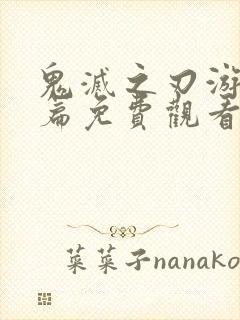 鬼滅之刃游
篇免費觀看
菜菜子nanako